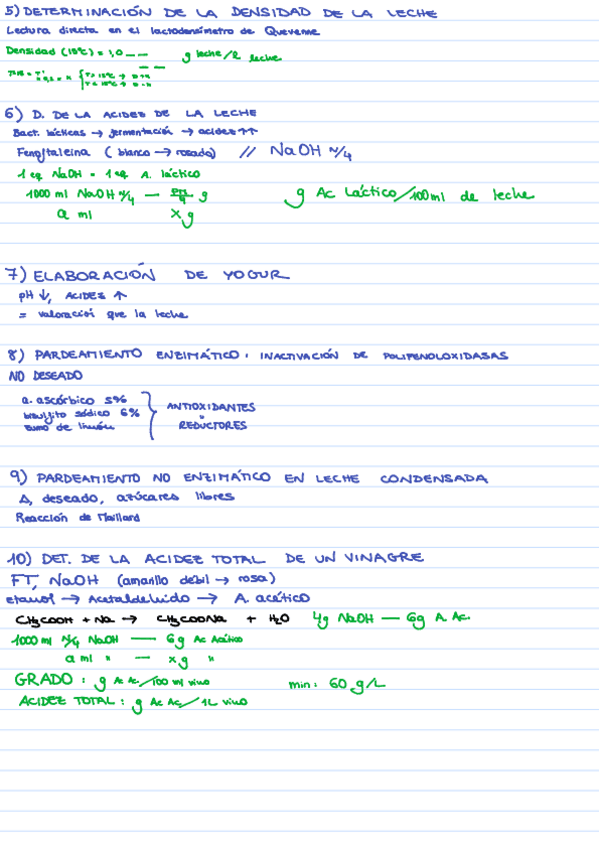 5) DETERMINACIÓN DE LA DENSIDAD DE LA LECHE
Lectura directa en el lactodensímetro de Quevenne
Densidad (15ºC) = 1,0 _ _ g leche/L leche
6) D. DE LA ACIDEZ DE LA LECHE
Bact. lácticas → fermentación → acidez ↑↑
Fenolftaleina (blanco → rosado) // NaOH N/4
1 eq NaOH = 1 eq A. láctico
1000 ml NaOH N/4 — g g Ac Láctico/100ml de leche
a ml x g
7) ELABORACIÓN DE YOGUR
pH ↓, ACIDEZ ↑
= valoración que la leche
8) PARDEAMIENTO ENZIMÁTICO. INACTIVACIÓN DE POLIFENOLOXIDASAS
NO DESEADO
a. ascórbico 5%
bisulfito sódico 6%
zumo de limón
ANTIOXIDANTES
REDUCTORES
9) PARDEAMIENTO NO ENZIMÁTICO EN LECHE CONDENSADA
Δ, deseado, azúcares libres
Reacción de Maillard
10) DET. DE LA ACIDEZ TOTAL DE UN VINAGRE
FT, NaOH (amarillo débil → rosa)
etanol → Acetaldehido → A. acético
CH3COOH + Na → CH3COONa + H2O 4g NaOH — 6g A. Ac.
1000 ml N/4 NaOH — 6 g Ac Acético
a ml " — x g "
GRADO : g Ac Ac/100 ml vino min: 60 g/L
ACIDEZ TOTAL : g Ac Ac/1L vino